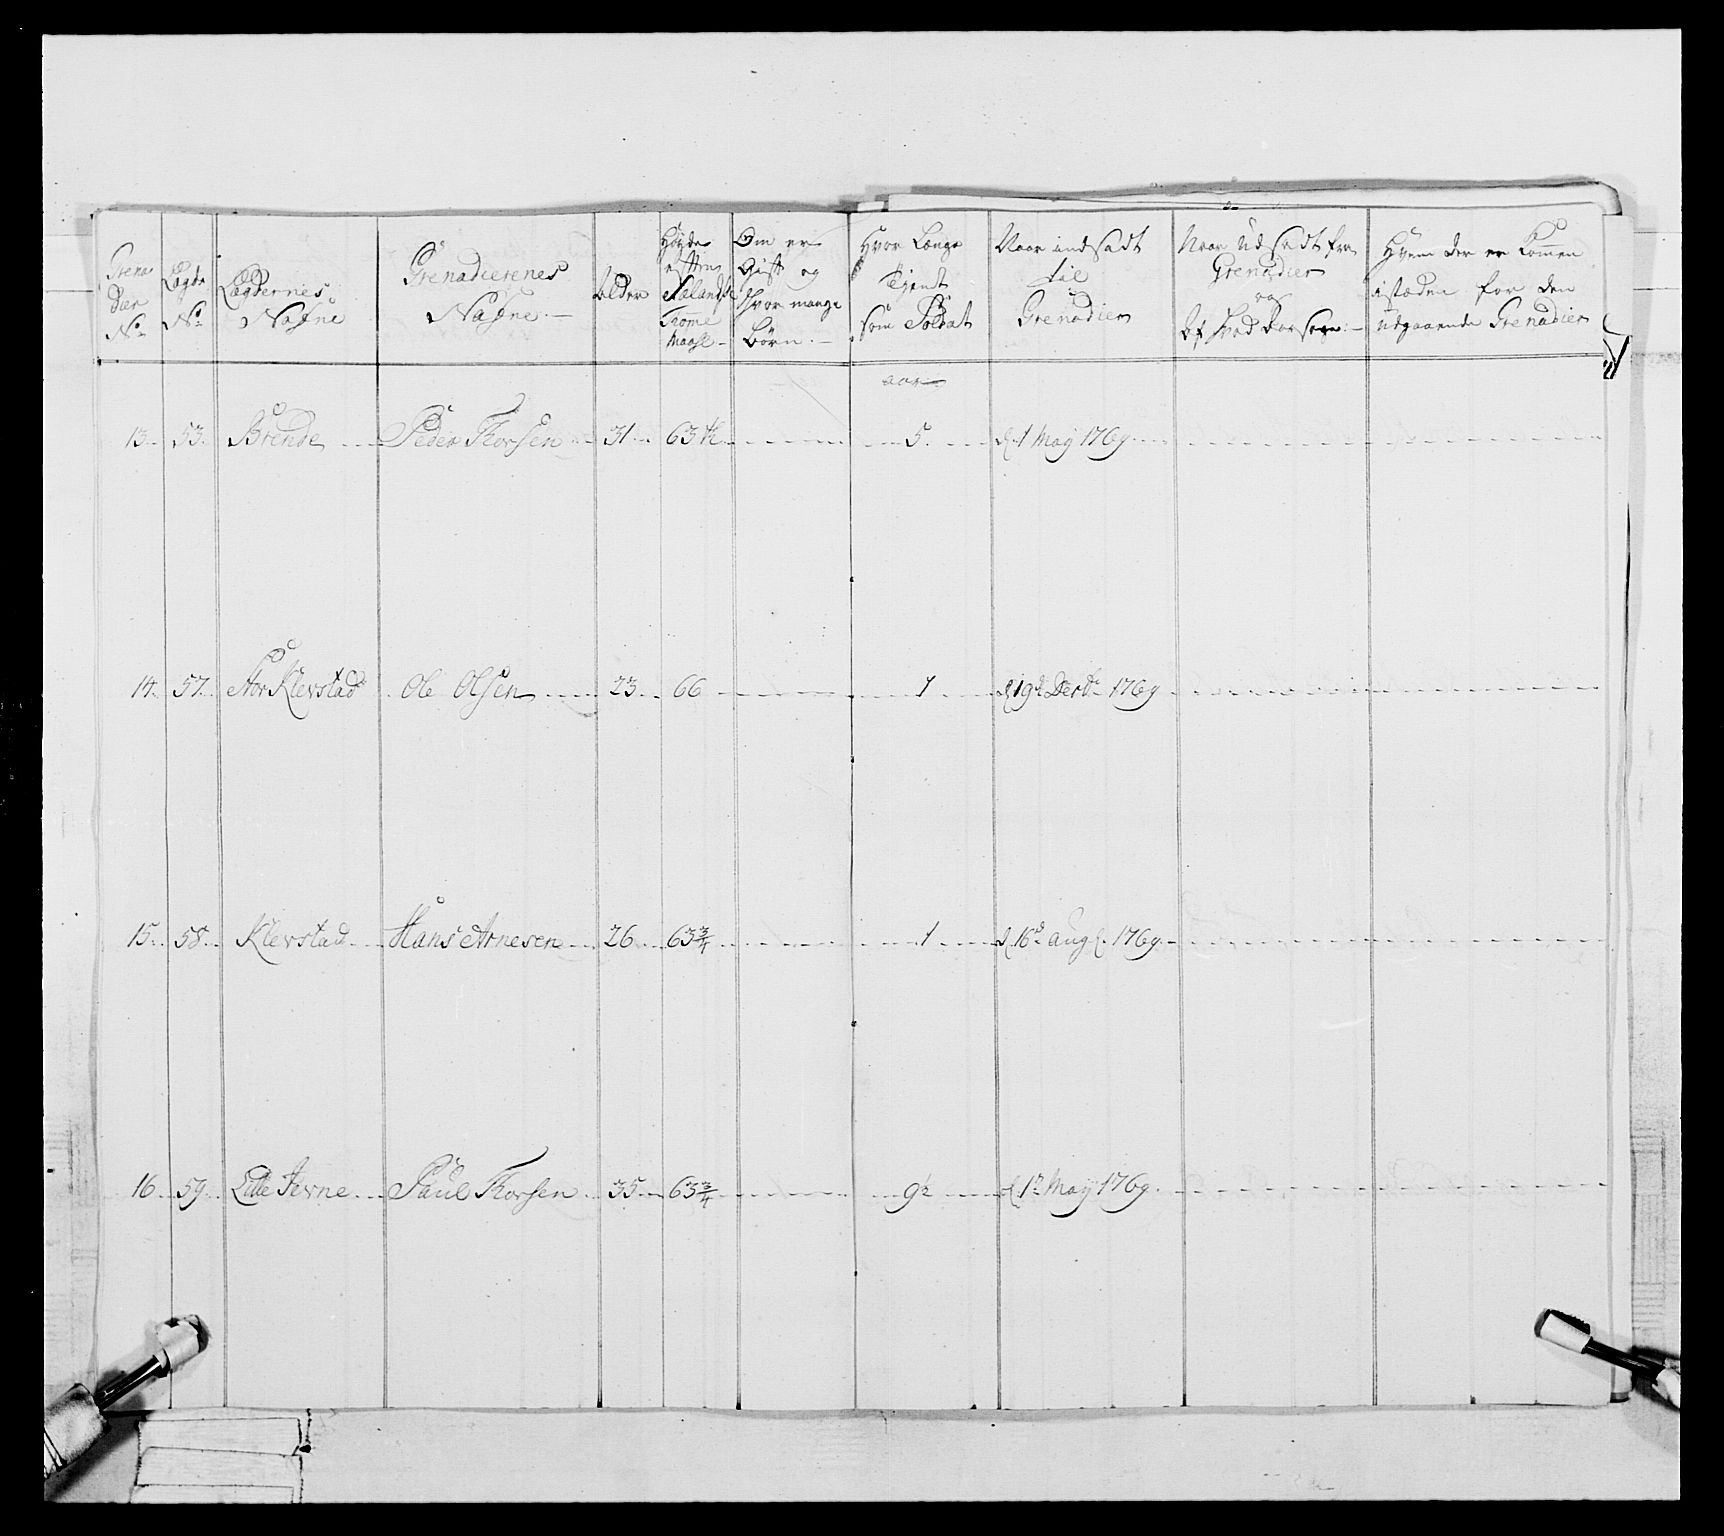 Grena
dier
No
Lægds
No
Lægdernes
Nafne
Grenadierenes
Nafne.
Alder
Høyde
efter
Siælandsk
Tomme
Maahl
Om er
Gift og
hvor mange
Børn.
Hvor Længe
Tiendt
som Soldat
Naar indsadt
til
Grenadier
Naar Udsadt fra
Grenadier
og
Af hvad Aarsage
Hvem der er kommen
i stæden for den
Udgaaende Grenadier
aar
13. 53. Brende Peder Thorsen 31 63 ½ 5. d. 1 May 1769
14. 57. Stor Klevstad Ole Olsen 23 66 1 d. 19de Decbr 1769
15. 58. Klevstad Hans Arnesen 26 63 3/4 1 d. 16de augl. 1769
16. 59. Lille Jevne Paul Thorsen 35 63 3/4 9½ d. 1te May 1769.